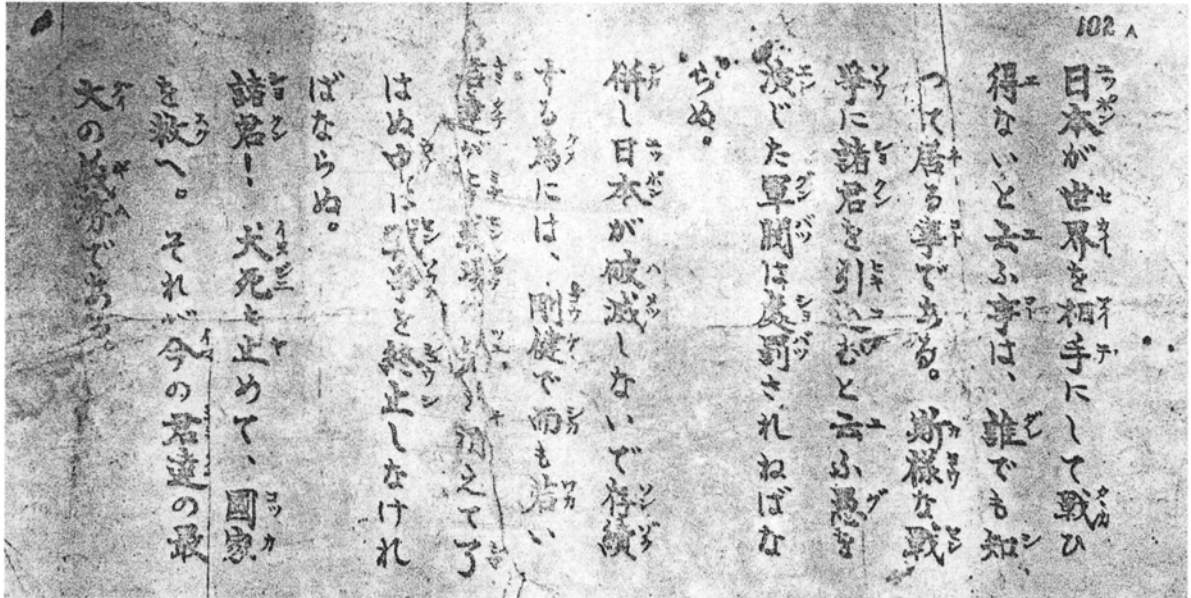 102 A
日本が世界を相手にして戦ひ
得ないと云ふ事は、誰でも知
つて居る事である。斯様な戦
爭に諸君を引いむと云ふ愚を
演じた軍閥は処罰されねばな
らぬ。
併し日本が破滅しないで存續
する爲には、剛健で而も若い
君達が戰場の 消えて了
はぬ中に戰爭を終止しなけれ
ばならぬ。
諸君！犬死を止めて、國家
を救へ。それが今の君達の最
大の義務である。